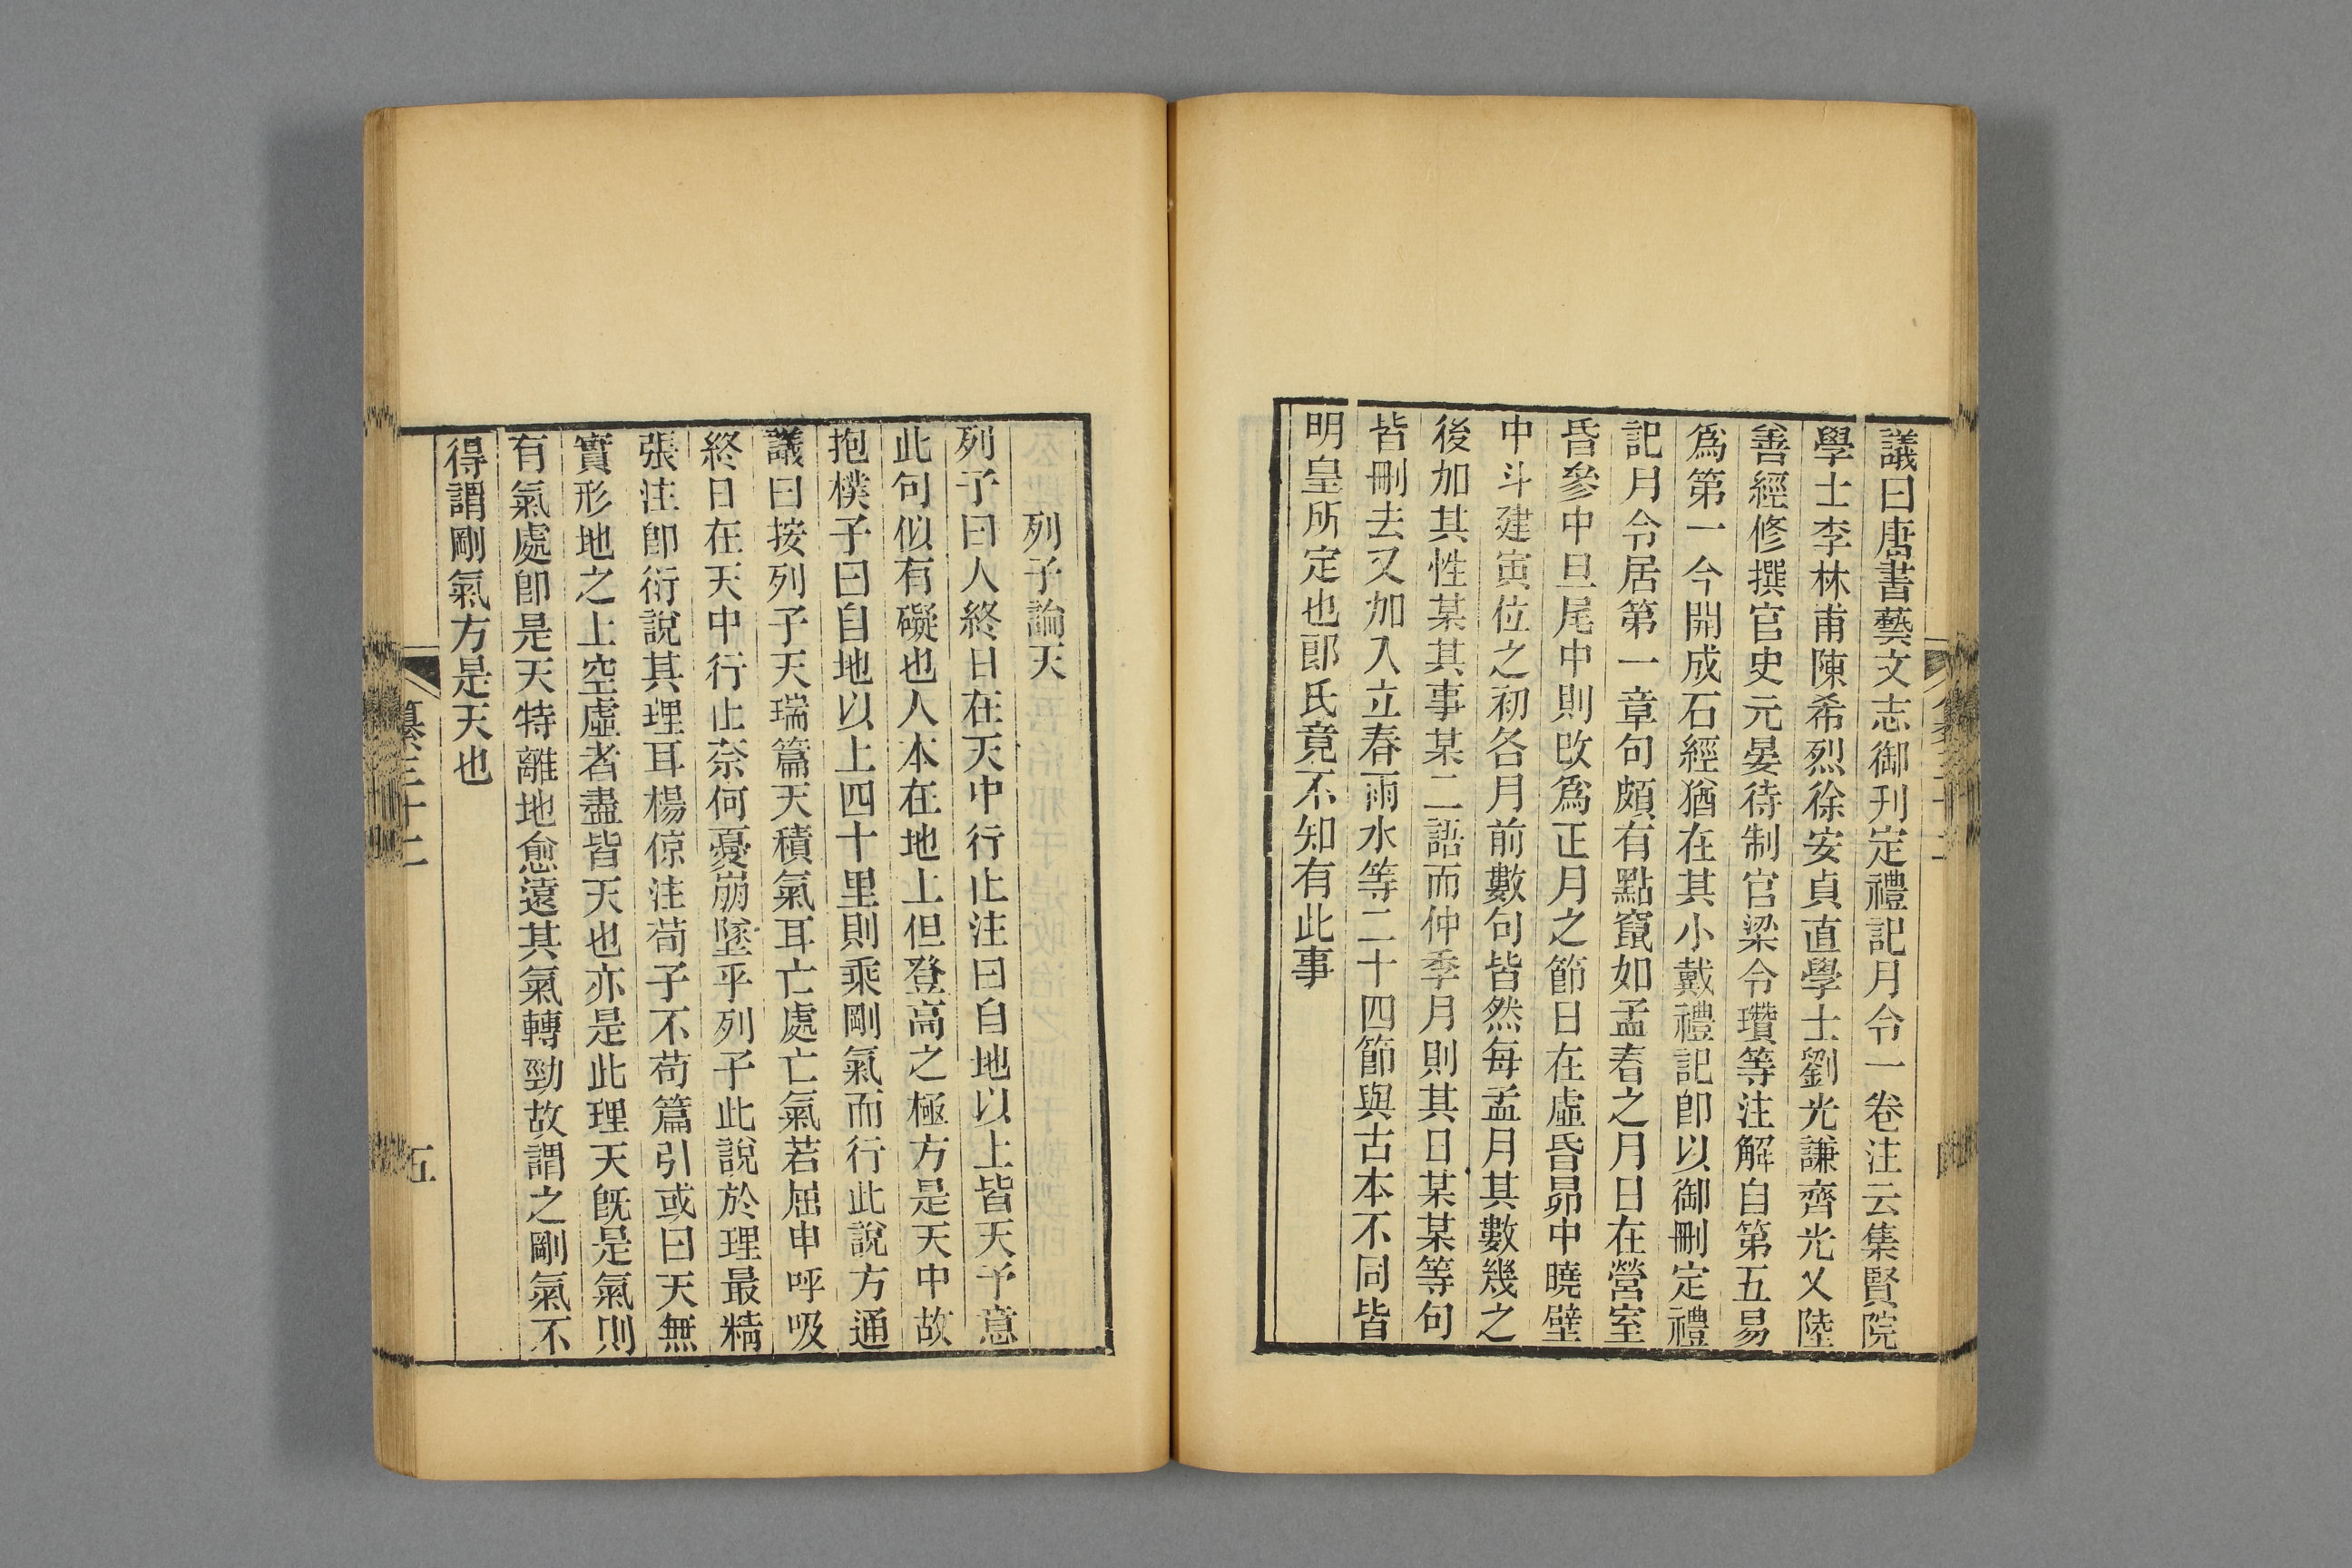 議曰唐書藝文志御刋定禮記月令一卷注云集賢院
學士李林甫陳希烈徐安貞直學士劉光謙齊光乂陸
善經修撰官史元晏待制官梁令瓚等注解自第五易
爲第一今開成石經猶在其小戴禮記卽以御刪定禮
記月令居第一章句頗有點竄如孟春之月日在營室
昏參中旦尾中則改爲正月之節日在虛昏昴中曉壁
中斗建寅位之初各月前數句皆然每孟月其數幾之
後加其性某其事某二語而仲季月則其日某某等句
皆刪去又加入立春雨水等二十四節與古本不同皆
明皇所定也郎氏竟不知有此事
列子論天
列子曰人終日在天中行止注曰自地以上皆天予意
此句似有礙也人本在地上但登高之極方是天中故
抱樸子曰自地以上四十里則乘剛氣而行此說方通
議曰按列子天瑞篇天積氣耳亡處亡氣若屈申呼吸
終日在天中行止奈何憂崩墜乎列子此說於理最精
張注卽衍說其理耳楊倞注荀子不苟篇引或曰天無
實形地之上空虛者盡皆天也亦是此理天旣是氣則
有氣處卽是天特離地愈遠其氣轉勁故謂之剛氣不
得謂剛氣方是天也
纂三十二
五